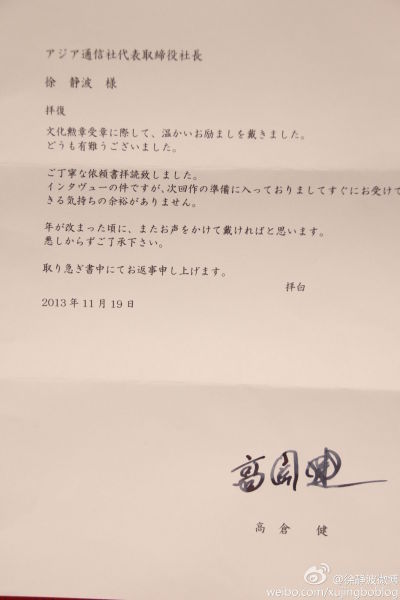 アジア通信社代表取締役社長
徐 静波 様
拝復
文化勲章受章に際して、温かいお励ましを戴きました。
どうも有難うございました。
ご丁寧な依頼書拝読致しました。
インタヴューの件ですが、次回作の準備に入っておりましてすぐにお受けで
きる気持ちの余裕がありません。
年が改まった頃に、またお声をかけて戴ければと思います。
悪しからずご了承下さい。
取り急ぎ書中にてお返事申し上げます。
拝白
2013年11月19日
高倉健
高 倉 健
@徐静波微博
weibo.com/xujingboblog